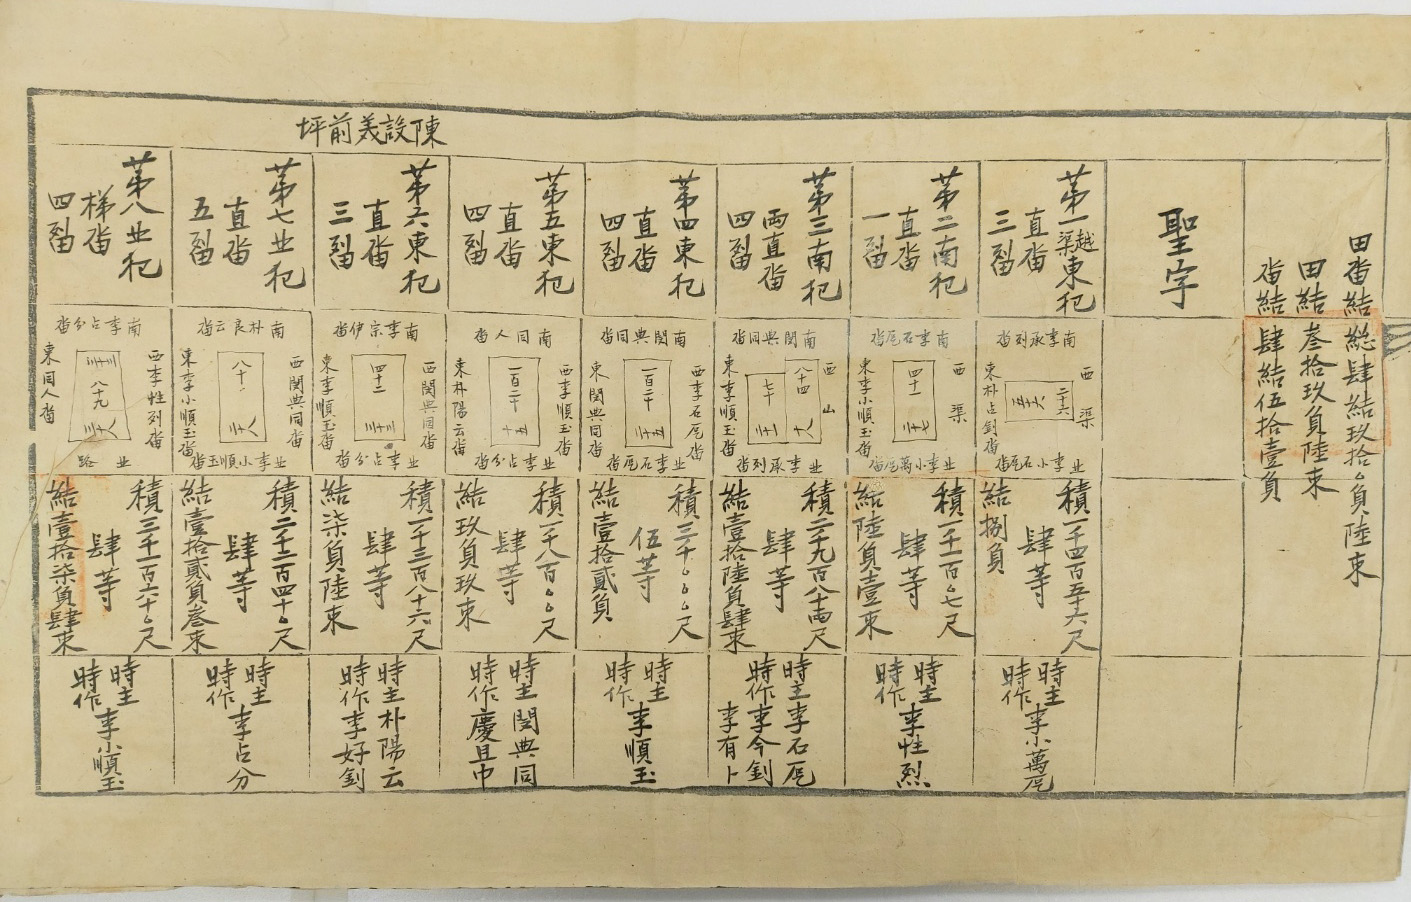 田畓結総肆結玖拾〻負陸束
田結叁拾玖負陸束
畓結肆結伍拾壹負
聖字
第一越渠東犯
直畓
三㽝
南李承列畓
西渠
二十六
五十六
東朴占釗畓
北李小石㖙畓
積一千四百五十六尺
肆等
結捌負
時主
時作
李小萬㖙
第二南犯
直畓
一㽝
南李石㖙畓
西渠
四十一
二十七
東李小順玉畓
北李小萬㖙畓
積一千一百〻七尺
肆等
結陸負壹束
時主
時作
李性烈
第三南犯
兩直畓
四㽝
南閔典同畓
西山
八十四
七十
十八
東李順玉畓
北李承列畓
積二千九百八十兩尺
肆等
結壹拾陸負肆束
時主李石㖙
時作李今釗
李有卜
第四東犯
直畓
四㽝
南閔典同畓
西李石㖙畓
一百二十
二十五
東閔典同畓
北李石㖙畓
積三千〻〻尺
伍等
結壹拾貳負
時主
時作
李順玉
第五東犯
直畓
四㽝
南同人畓
西李順玉畓
一百二十
十五
東朴陽云畓
北李占分畓
積一千八百〻〻尺
肆等
結玖負玖束
時主閔典同
時作慶且巾
陳設美前坪
第六東犯
直畓
三㽝
南李宗伊畓
西閔典同畓
四十二
三十三
東李順玉畓
北李占分畓
積一千三百八十六尺
肆等
結柒負陸束
時主朴陽云
時作李好釗
第七北犯
直畓
五㽝
南朴良云畓
西閔典同畓
八十
二十八
東李小順玉畓
北李小順玉畓
積二千二百四十〻尺
肆等
結壹拾貳負叁束
時主
時作
李占分
第八北犯
梯畓
四㽝
南李占分畓
西李性列畓
八十九
東同人畓
北路
積三千一百六十〻尺
肆等
結壹拾柒負肆束
時主
時作
李小順玉